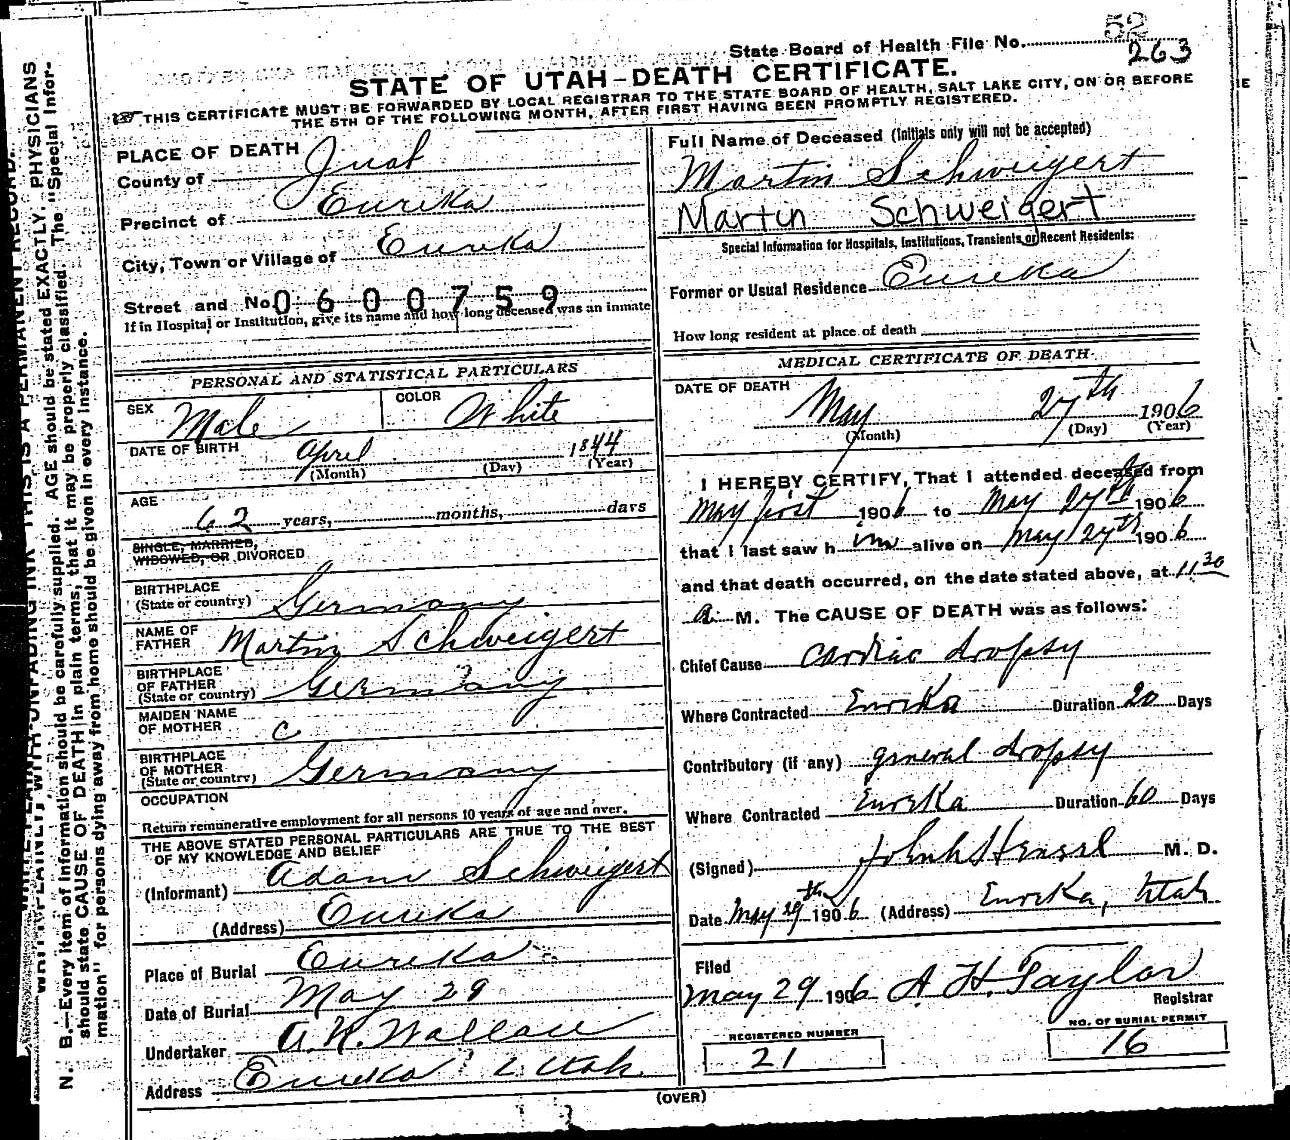 52
State Board of Health File No. 263
STATE OF UTAH—DEATH CERTIFICATE.
THIS CERTIFICATE MUST BE FORWARDED BY LOCAL REGISTRAR TO THE STATE BOARD OF HEALTH, SALT LAKE CITY, ON OR BEFORE
THE 5TH OF THE FOLLOWING MONTH, AFTER FIRST HAVING BEEN PROMPTLY REGISTERED.
PLACE OF DEATH
County of Juab
Precinct of Eureka
City, Town or Village of Eureka
Street and No. 0600759
If in Hospital or Institution, give its name and how long deceased was an inmate
PERSONAL AND STATISTICAL PARTICULARS
SEX Male COLOR White
DATE OF BIRTH April 1844
(Month) (Day) (Year)
AGE
62 years, months, days
SINGLE, MARRIED,
WIDOWED, OR DIVORCED
BIRTHPLACE
(State or country) Germany
NAME OF
FATHER Martin Schweigert
BIRTHPLACE
OF FATHER
(State or country) Germany
MAIDEN NAME
OF MOTHER C
BIRTHPLACE
OF MOTHER
(State or country) Germany
OCCUPATION
Return remunerative employment for all persons 10 years of age and over.
THE ABOVE STATED PERSONAL PARTICULARS ARE TRUE TO THE BEST
OF MY KNOWLEDGE AND BELIEF
(Informant) Adam Schweigert
(Address) Eureka
Place of Burial Eureka
Date of Burial May 29
Undertaker A. N. Wallace
Address Eureka Utah
Full Name of Deceased (Initials only will not be accepted)
Martin Schweigert
Martin Schweigert
Special Information for Hospitals, Institutions, Transients or Recent Residents:
Former or Usual Residence Eureka
How long resident at place of death
MEDICAL CERTIFICATE OF DEATH
DATE OF DEATH
May 27th 1906
(Month) (Day) (Year)
I HEREBY CERTIFY, That I attended deceased from
May first 1906 to May 27th 1906
that I last saw him alive on May 27th 1906
and that death occurred, on the date stated above, at 11 30
a. M. The CAUSE OF DEATH was as follows:
Chief Cause Cardiac dropsy
Where Contracted Eureka Duration 20 Days
Contributory (if any) general dropsy
Where Contracted Eureka Duration 60 Days
(Signed) M. D.
Date May 29th 1906 (Address) Eureka, Utah
Filed
May 29 1906 A. H. Taylor
Registrar
REGISTERED NUMBER
21
NO. OF BURIAL PERMIT
16
(OVER)
N. B.—Every item of information should be carefully supplied. AGE should be stated EXACTLY. PHYSICIANS
should state CAUSE OF DEATH in plain terms, that it may be properly classified. The "Special Infor-
mation" for persons dying away from home should be given in every instance.